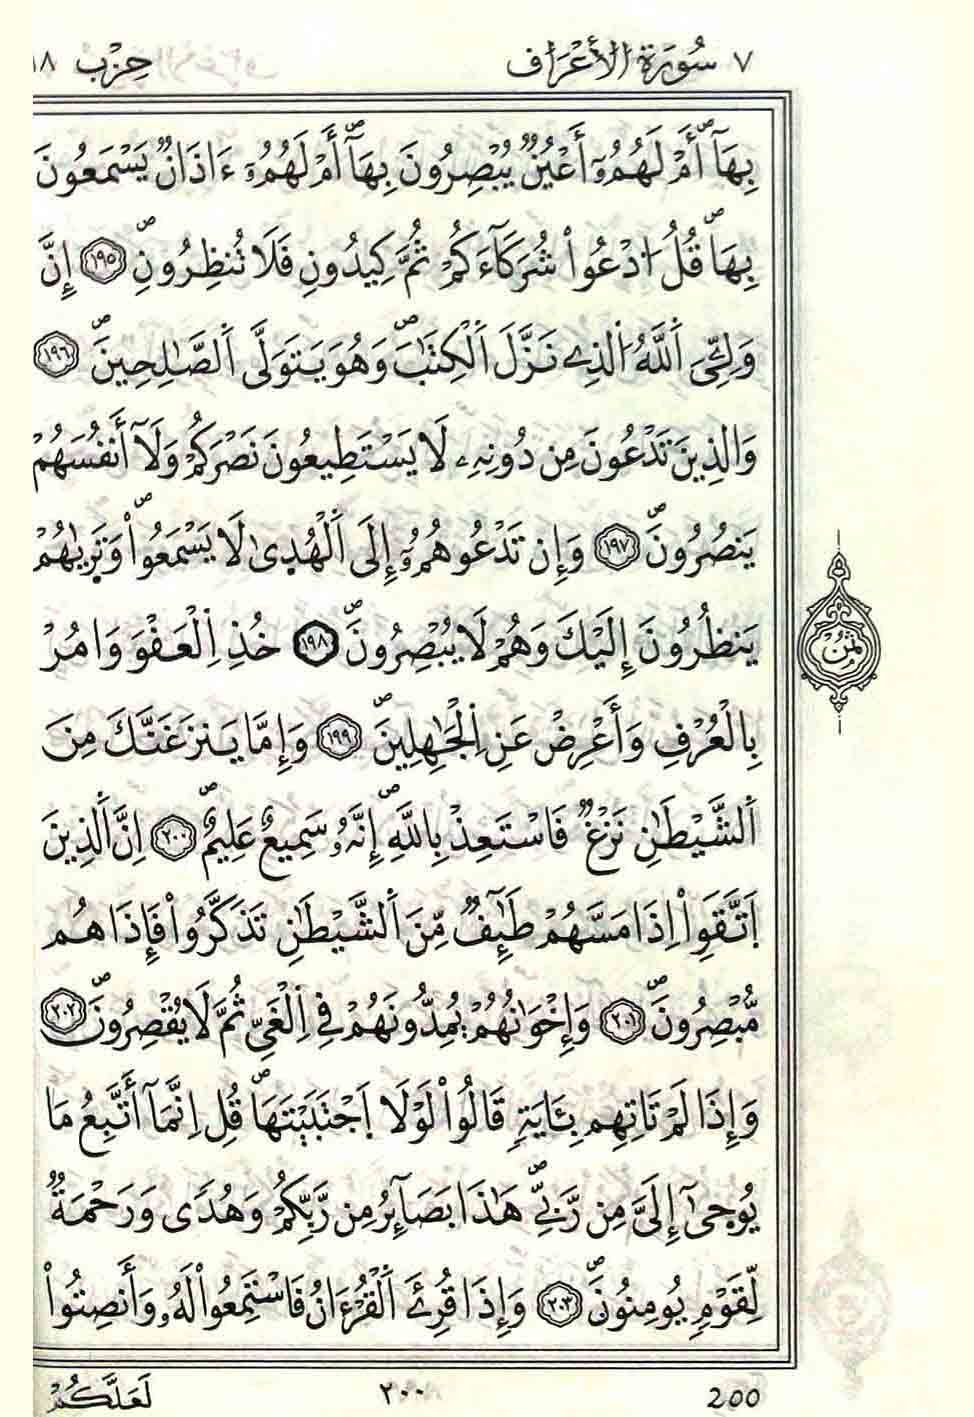 ٧ سُورَةُ الْأَعْرَافِ حِزْب ١٨
بِهَآۖ أَمْ لَهُمُۥٓ أَعْيُنٞ يُبْصِرُونَ بِهَآۖ أَمْ لَهُمُۥٓ ءَاذَانٞ يَسْمَعُونَ
بِهَاۖ قُلُ اُدْعُواْ شُرَكَآءَكُمْ ثُمَّ كِيدُونِ فَلَا تُنظِرُونِۖ ١٩٥ إِنَّ
وَلِـِّۧيَ اَ۬للَّهُ اُ۬لذِے نَزَّلَ اَ۬لْكِتَٰبَۖ وَهُوَ يَتَوَلَّى اَ۬لصَّٰلِحِينَۖ ١٩٦
وَالذِينَ تَدْعُونَ مِن دُونِهِۦ لَا يَسْتَطِيعُونَ نَصْرَكُمْ وَلَآ أَنفُسَهُمْ
يَنصُرُونَۖ ١٩٧ وَإِن تَدْعُوهُمُۥٓ إِلَى اَ۬لْهُد۪ىٰ لَا يَسْمَعُواْۖ وَتَر۪ىٰهُمْ
يَنظُرُونَ إِلَيْكَ وَهُمْ لَا يُبْصِرُونَۖ ١٩٨ خُذِ اِ۬لْعَفْوَ وَامُرْ
بِالْعُرْفِ وَأَعْرِضْ عَنِ اِ۬لْجَٰهِلِينَۖ ١٩٩ وَإِمَّا يَنزَغَنَّكَ مِنَ
اَ۬لشَّيْطَٰنِ نَزْغٞ فَاسْتَعِذْ بِاللَّهِۖ إِنَّهُۥ سَمِيعٌ عَلِيمٌۖ ٢٠٠ اِنَّ اَ۬لذِينَ
اَ۪تَّقَوِاْ اِذَا مَسَّهُمْ طَٰٓئِفٞ مِّنَ اَ۬لشَّيْطَٰنِ تَذَكَّرُواْ فَإِذَا هُم
مُّبْصِرُونَۖ ٢٠١ وَإِخْوَٰنُهُمْ يُمِدُّونَهُمْ فِے اِ۬لْغَيِّ ثُمَّ لَا يُقْصِرُونَۖ ٢٠٢
وَإِذَا لَمْ تَاتِهِم بِـَٔايَةٖ قَالُواْ لَوْلَا اَ۪جْتَبَيْتَهَاۖ قُلِ اِنَّمَآ أَتَّبِعُ مَا
يُوح۪ىٰٓ إِلَيَّ مِن رَّبِّےۖ هَٰذَا بَصَآئِرُ مِن رَّبِّكُمْ وَهُدىٗ وَرَحْمَةٞ
لِّقَوْمٖ يُومِنُونَۖ ٢٠٣ وَإِذَا قُرِۓَ اَ۬لْقُرْءَانُ فَاسْتَمِعُواْ لَهُۥ وَأَنصِتُواْ
ثُمُن
200 ٢٠٠ لَعَلَّكُمْ